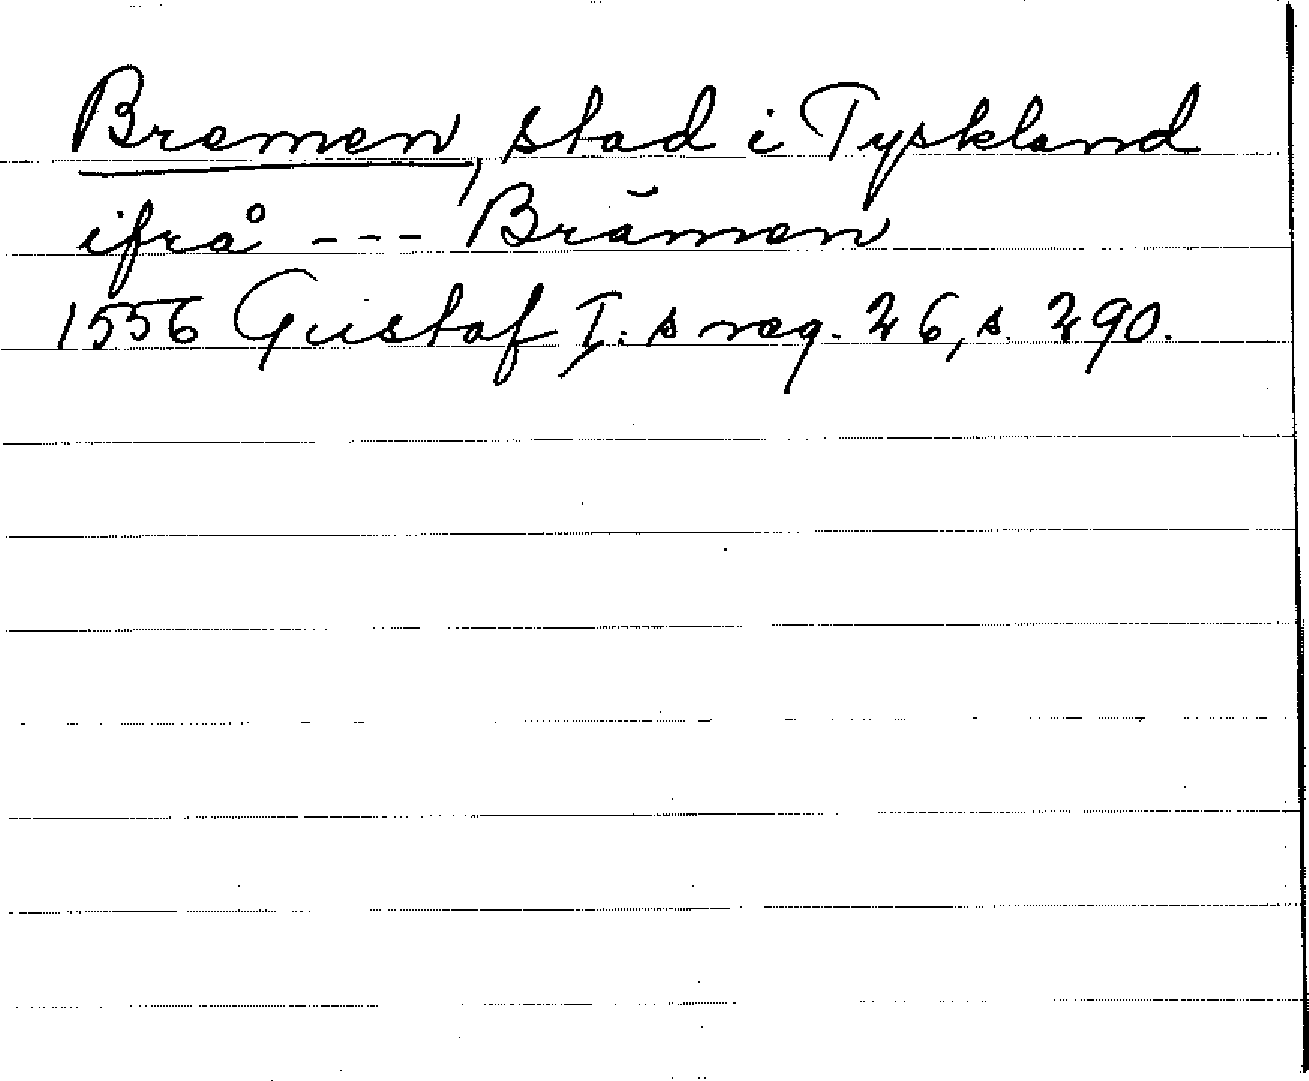 Bremen, stad i Tyskland
ifrå --- Brämen
1556 Gustaf I:s reg. 26, s. 290.